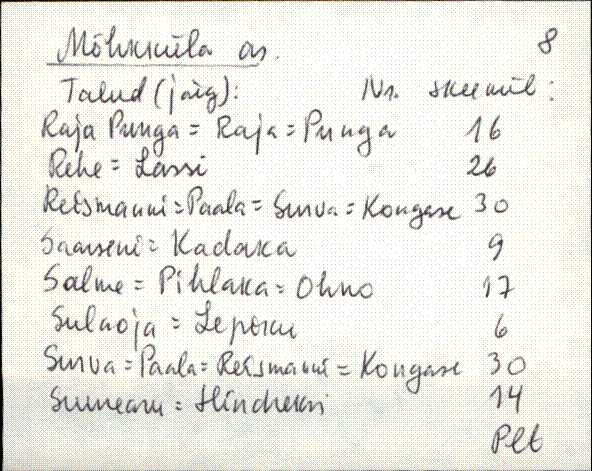 Mõhkküla as. 8
Talud (järg): Nr. skeemil:
Raja Punga = Raja = Punga 16
Rehe = Lassi 26
Reismanni = Paala = Surva = Kongase 30
Saarseni = Kadaka 9
Salme = Pihlaka = Ohno 17
Sulaoja = Lepiku 6
Surva = Paala = Reismanni = Kongase 30
14
Plt